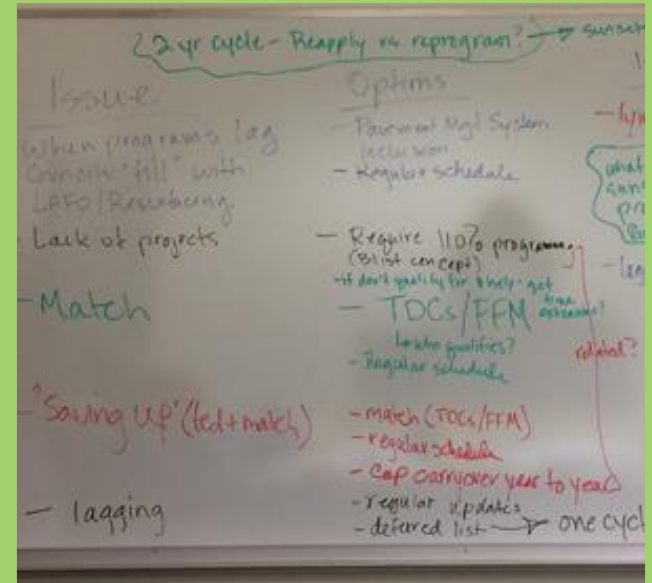 2 yr cycle - Reapply vs reprogram? → sunset
Issue
When programs lag
Councils "fill" with
LAFO/Resurfacing
- Lack of projects
- Match
- "Saving up" (fed + match)
- lagging
Options
- Pavement Mgt System
inclusion
- Regular schedule
- Require 110% programming
(B list concept)
- if don't qualify for $ help - get
time
extension?
- TDCs/FFM
who qualifies?
- Regular schedule
related?
- match (TDCs/FFM)
- regular schedule
- Cap carryover year to year
- regular updates
- deferred list → one cycl
what
pro
- lag